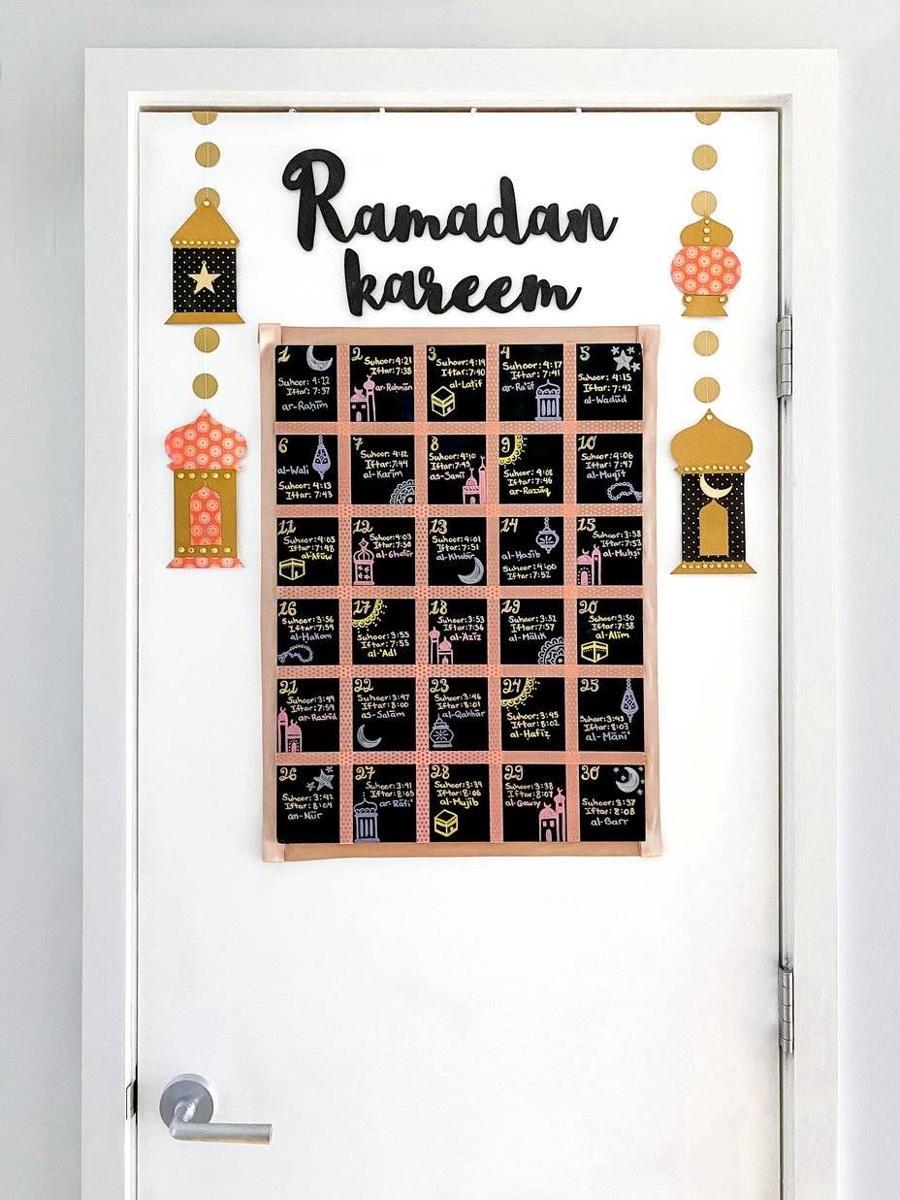 Ramadan
kareem
1
Suhoor: 4:22
Iftar: 7:37
ar-Rahim
2
Suhoor: 4:21
Iftar: 7:38
ar-Rahman
3
Suhoor: 4:19
Iftar: 7:40
al-Latif
4
Suhoor: 4:17
Iftar: 7:41
ar-Ra'uf
5
Suhoor: 4:15
Iftar: 7:42
al-Wadūd
6
al-Wali
Suhoor: 4:13
Iftar: 7:43
7
Suhoor: 4:12
Iftar: 7:44
al-Karīm
8
Suhoor: 4:10
Iftar: 7:45
as-Samī
9
Suhoor: 4:08
Iftar: 7:46
ar-Razzāq
10
Suhoor: 4:06
Iftar: 7:47
al-Muqīt
11
Suhoor: 4:05
Iftar: 7:48
al-Afūw
12
Suhoor: 4:03
Iftar: 7:50
al-Ghafūr
13
Suhoor: 4:01
Iftar: 7:51
al-Khabīr
14
al-Hasīb
Suhoor: 4:00
Iftar: 7:52
15
Suhoor: 3:58
Iftar: 7:53
16
Suhoor: 3:56
Iftar: 7:54
al-Hakam
17
Suhoor: 3:55
Iftar: 7:55
al-'Adl
18
Suhoor: 3:53
Iftar: 7:56
al-Azīz
19
Suhoor: 3:52
Iftar: 7:57
al-Mālik
20
Suhoor: 3:50
Iftar: 7:58
al-Alīm
21
Suhoor: 3:49
Iftar: 7:59
ar-Rashīd
22
Suhoor: 3:47
Iftar: 8:00
as-Salām
23
Suhoor: 3:46
Iftar: 8:01
al-Qahhār
24
Suhoor: 3:45
Iftar: 8:02
al-Hafīz
25
Suhoor: 3:43
Iftar: 8:03
al-Māni'
26
Suhoor: 3:42
Iftar: 8:04
an-Nūr
27
Suhoor: 3:41
Iftar: 8:05
ar-Rāfi'
28
Suhoor: 3:39
Iftar: 8:06
al-Mujīb
29
Suhoor: 3:38
Iftar: 8:07
30
Suhoor: 3:37
Iftar: 8:08
al-Barr